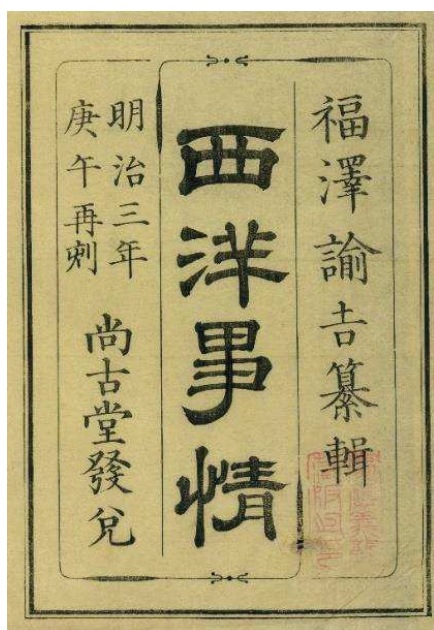 福澤諭吉纂輯
西洋事情
明治三年
庚午再刻
尚古堂發兌